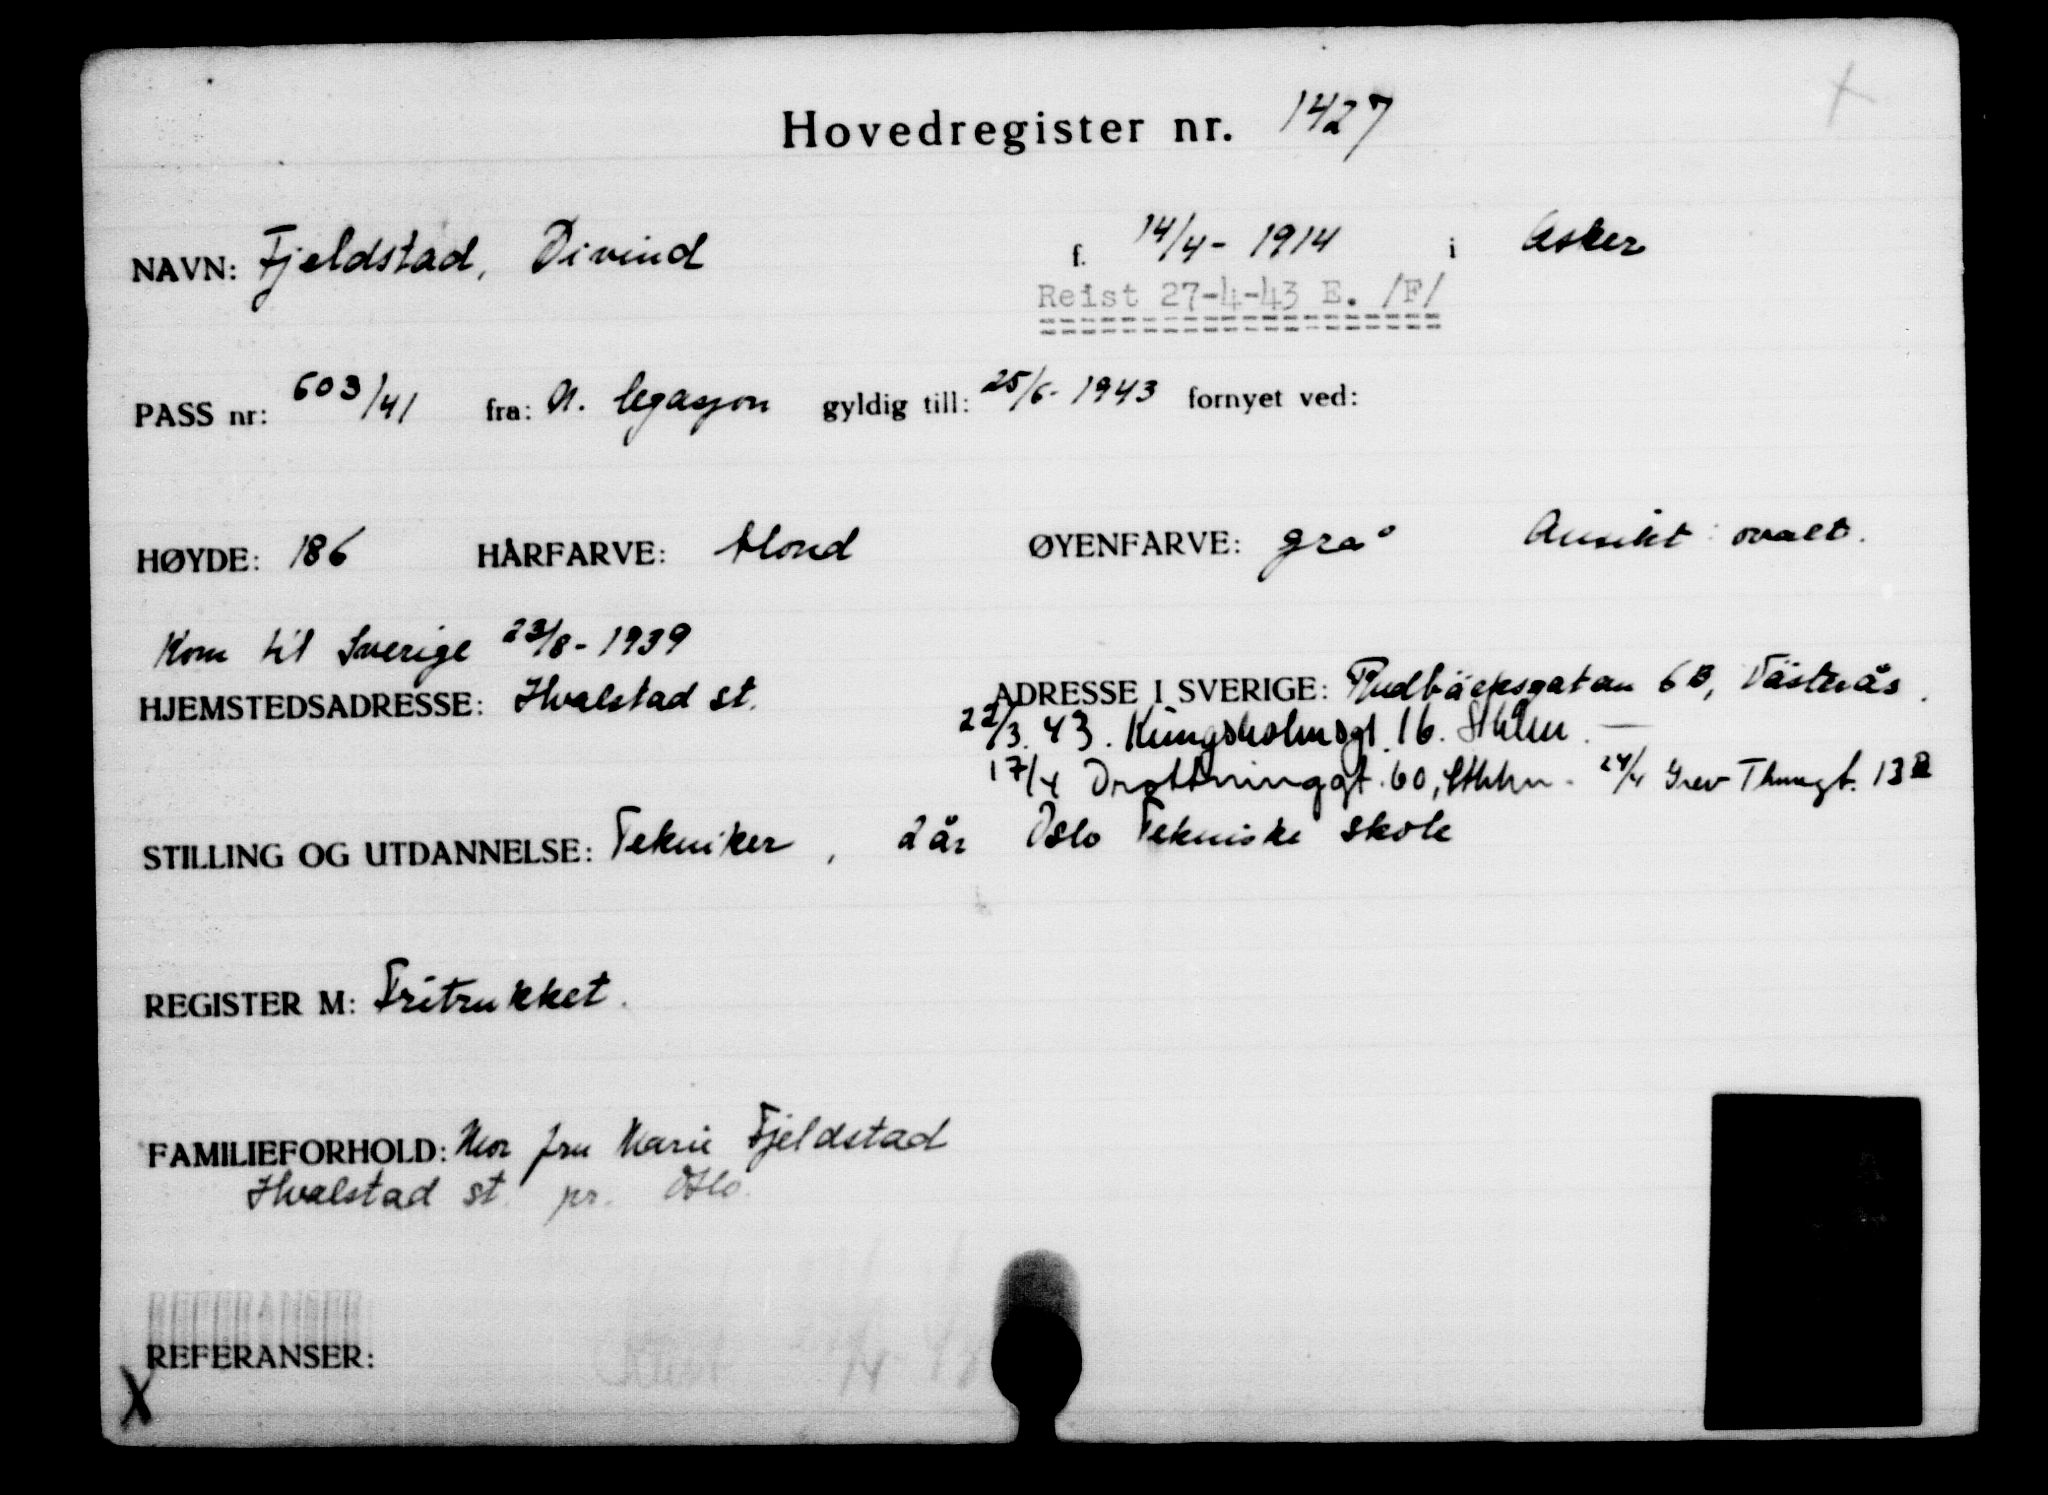 Hovedregister nr. 1427
NAVN: Fjeldstad, Øivind f. 14/4 - 1914 i Asker
Reist 27-4-43 E. /F/
PASS nr: 603/41 fra: N. legasjon gyldig till: 25/6 - 1943 fornyet ved:
HØYDE: 186 HÅRFARVE: blond ØYENFARVE: grå Ansikt: ovalt.
Kom til Sverige 23/8 - 1939
HJEMSTEDSADRESSE: Hvalstad st. ADRESSE I SVERIGE: Rudbäcksgatan 6B, Västerås.
22/3. 43. Kungsholmsgt. 16. Sthlm. —
17/4 Drottninggt. 60, Sthlm. 24/4 Grev Thuregt. 13
STILLING OG UTDANNELSE: Tekniker, 2 år Oslo Tekniske skole
REGISTER M: Fritrukket.
FAMILIEFORHOLD: Mor fru Marie Fjeldstad
Hvalstad st. pr. Oslo.
REFERANSER:
X